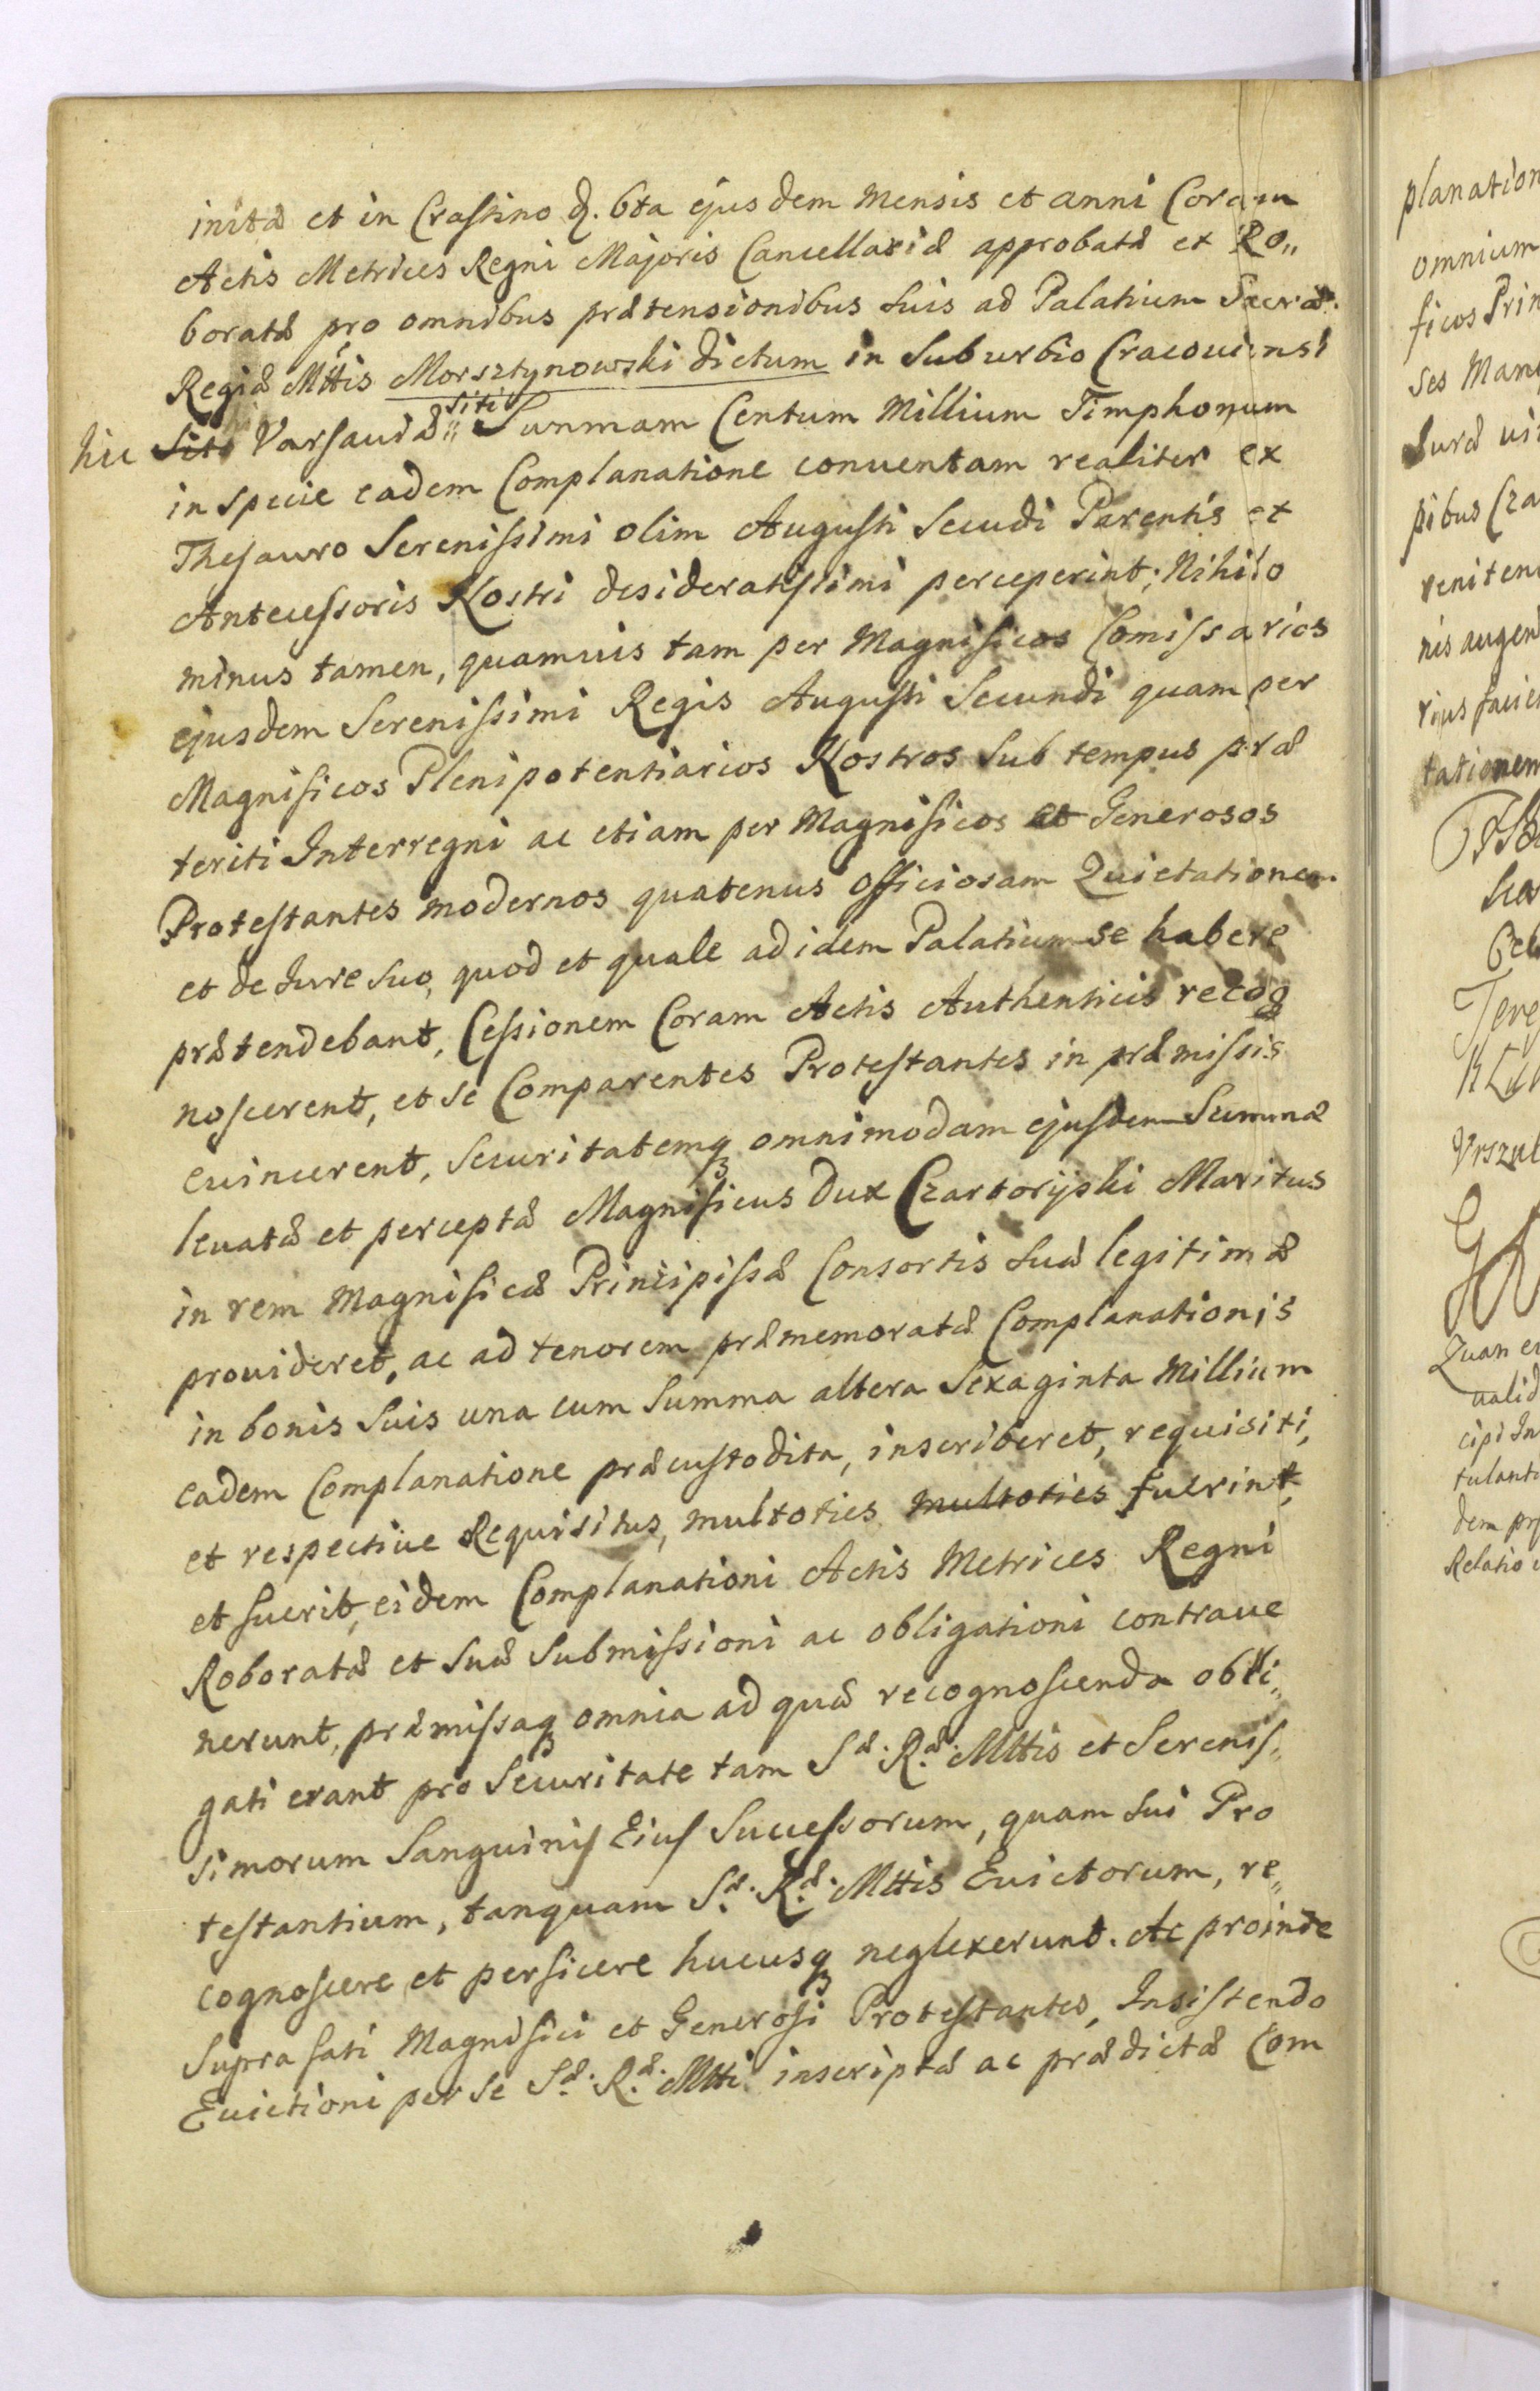 initæ et in Crastino d. 6ta ejusdem Mensis et anni Coram
Actis Metrices Regni Majoris Cancellariæ approbatæ et Ro„
boratæ pro omnibus prætensionibus suis ad Palatium Sacræ.
Regiæ Mttis Morsztynowski dictum in Suburbio Cracoviensi
siti
hic Sito Varsaviæ„ Summam Centum Millium Timphonum
in specie eadem Complanatione conventam realiter ex
Thesauro Serenissimi olim Augusti Secudi Parentis et
Antecessoris Nostri desideratissimi perceperint; Nihilo
minus tamen, quamvis tam per Magnificos Comissarios
ejusdem Serenissimi Regis Augusti Secundi quam per
Magnificos Plenipotentiarios Nostros Sub tempus præ
teriti Interregni ac etiam per Magnificos et Generosos
Protestantes modernos quatenus officiosam Quietationem
et de Jure suo, quod et quale ad idem Palatium se habere
prætendebant, Cessionem Coram Actis Authenticis recog
noscerent, et se Comparentes Protestantes in præmissis
evincerent, securitatemq omnimodam ejusdem Summæ
levatæ et perceptæ Magnificus Dux Czartoryski Maritus
in rem Magnificæ Principissæ Consortis suæ legitimæ
provideret, ac ad tenorem præmemoratæ Complanationis
in bonis suis una cum Summa altera Sexaginta Millium
eadem Complanatione præcustodita, inscriberet, requisiti,
et respective Requisitus, multoties multoties fuerint,
et fuerit, eidem Complanationi Actis Metrices Regni
Roboratæ et suæ Submissioni ac obligationi contrave
nerunt, præmissaq omnia ad quæ recognoscenda obli„
gati erant pro Securitate tam Sæ. Ræ. Mttis et Serenis„
simorum Sanguinis Eius Successorum, quam sui Pro
testantium, tanquam Sæ. Ræ. Mttis Evictorum, re„
cognoscere et perficere hucusq neglexerunt. Ac proinde
Suprafati Magnifici et Generosi Protestantes, Insistendo
Evictioni per se Sæ. Ræ. Mtti inscriptæ ac prædictæ Com
planation
omnium
ficos Prin
ses Man
Juræ vi
pibus Cza
reniten
nis augen
rius facien
tationem
Urszul
Quan
valid
cipi In
tulant
dem pr
Relatio